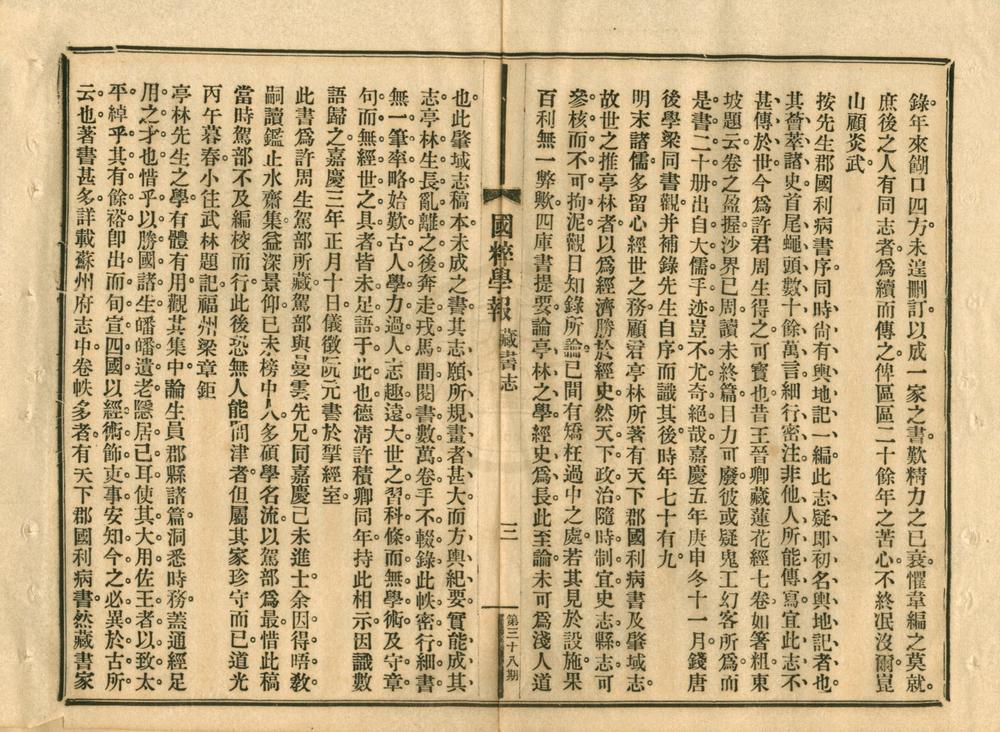 錄年來餬口四方未遑刪訂以成一家之書歎精力之已衰懼韋編之莫就
庶後之人有同志者為續而傳之俾區區二十餘年之苦心不終泯沒爾崑
山顧炎武
按先生郡國利病書序同時尚有輿地記一編此志疑即初名輿地記者也
其薈萃諸史首尾蠅頭數十餘萬言細行密注非他人所能傳寫宜此志不
甚傳於世今為許君周生得之可寶也昔王晉卿藏蓮花經七卷如箸粗東
坡題云卷之盈握沙界已周讀未終篇目力可廢彼或疑鬼工幻客所為而
是書二十册出自大儒手迹豈不尤奇絕哉嘉慶五年庚申冬十一月錢唐
後學梁同書觀并補錄先生自序而識其後時年七十有九
明末諸儒多留心經世之務顧君亭林所著有天下郡國利病書及肇域志
故世之推亭林者以為經濟勝於經史然天下政治隨時制宜史志縣志可
參核而不可拘泥觀日知錄所論已間有矯枉過中之處若其見於設施果
百利無一弊歟四庫書提要論亭林之學經史為長此至論未可為淺人道
國粹學報
藏書志
三
第三十八期
也此肇域志稿本未成之書其志願所規畫者甚大而方輿紀要實能成其
志亭林生長亂離之後奔走戎馬間閱書數萬卷手不輟錄此帙密行細書
無一筆率略始歎古人學力過人志趣遠大世之習科條而無學術及守章
句而無經世之具者皆未足語于此也德清許積卿同年持此相示因識數
語歸之嘉慶三年正月十日儀徵阮元書於揅經室
此書為許周生駕部所藏駕部與曼雲先兄同嘉慶已未進士余因得晤教
嗣讀鑑止水齋集益深景仰已未榜中人多碩學名流以駕部為最惜此稿
當時駕部不及編校而行此後恐無人能問津者但屬其家珍守而已道光
丙午暮春小住武林題記福州梁章鉅
亭林先生之學有體有用觀其集中論生員郡縣諸篇洞悉時務蓋通經足
用之才也惜乎以勝國諸生皤皤遺老隱居已耳使其大用佐王者以致太
平綽乎其有餘裕即出而旬宣四國以經術飾吏事安知今之必異於古所
云也著書甚多詳載蘇州府志中卷帙多者有天下郡國利病書然藏書家